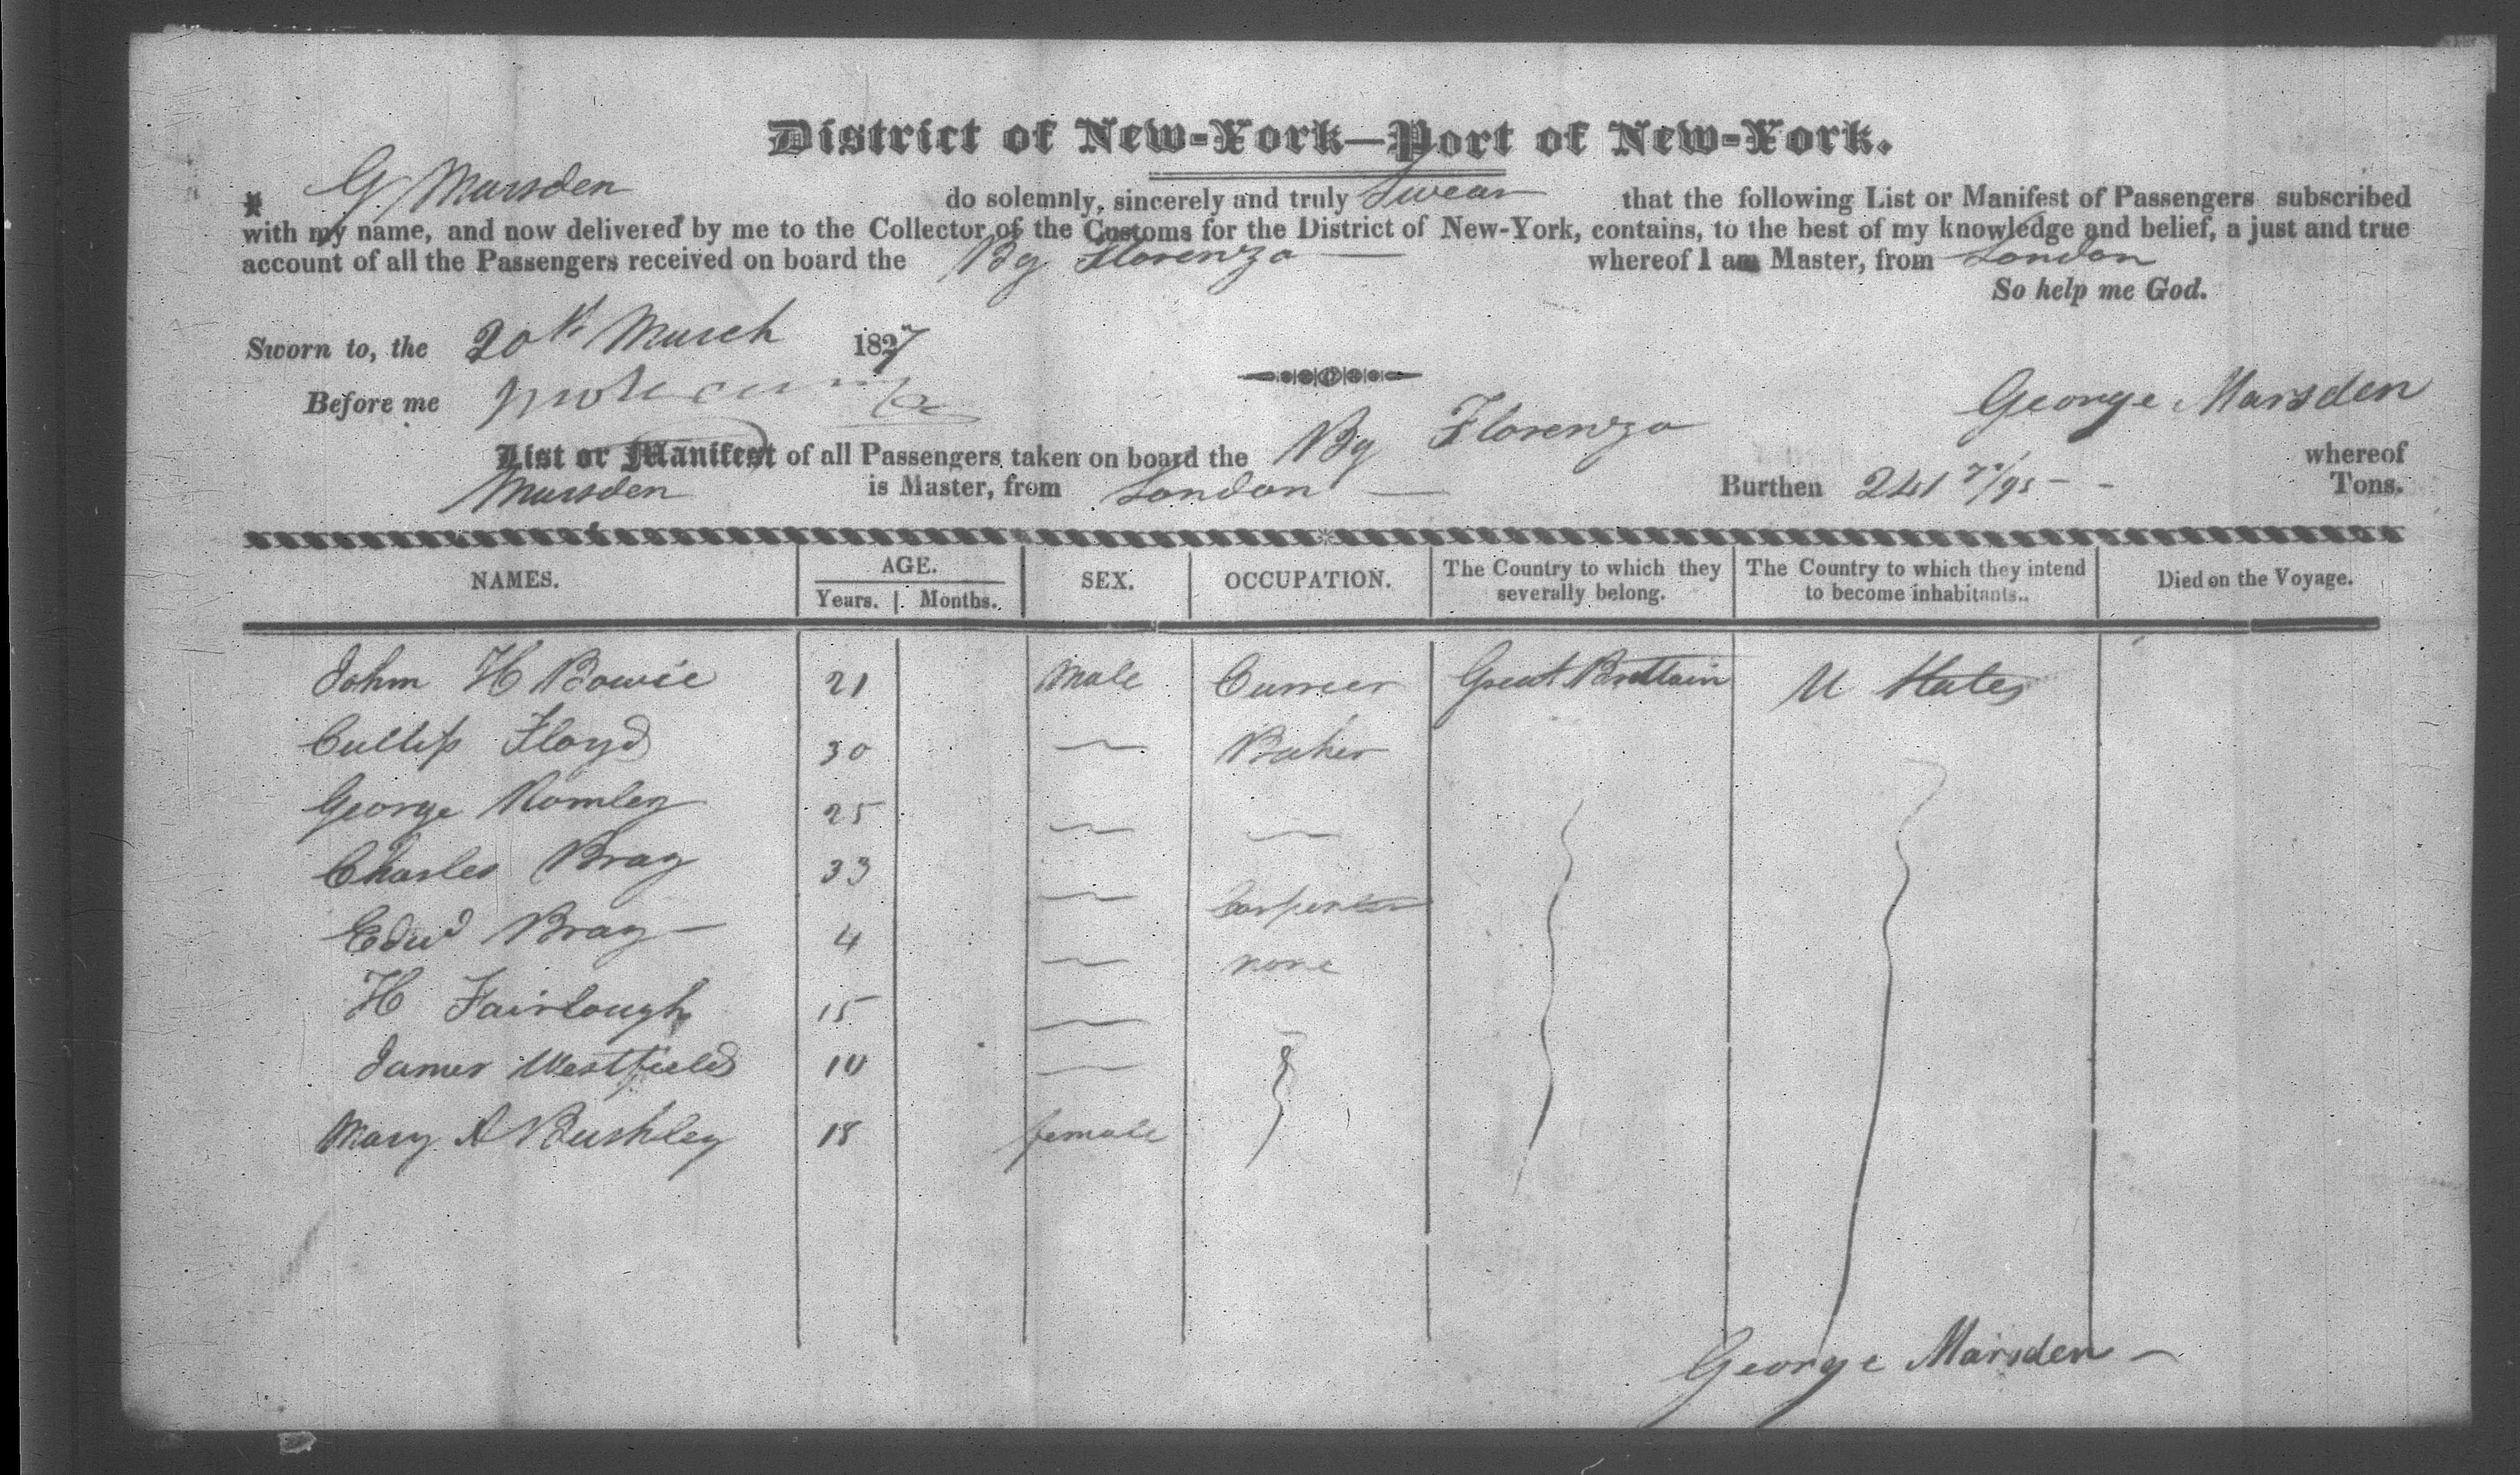 District of New-York—Port of New-York.
I G Marsden do solemnly, sincerely and truly Swear that the following List or Manifest of Passengers subscribed
with my name, and now delivered by me to the Collector of the Customs for the District of New-York, contains, to the best of my knowledge and belief, a just and true
account of all the Passengers received on board the Bg Florenza — whereof I am Master, from London
So help me God.
Sworn to, the 20th March 1827
Before me
George Marsden
List or Manifest of all Passengers taken on board the Bg Florenza whereof
Marsden is Master, from London — Burthen 241 /95 - - Tons.
NAMES. AGE. SEX. OCCUPATION. The Country to which they severally belong. The Country to which they intend to become inhabitants. Died on the Voyage.
Years. Months.
John H Bowie 21 Male Currier Great Brittain U States
Cullip Floyd 30 — Baker
George Romley 25 — —
Charles Bray 33 — Carpenter
Edwd Bray — 4 — none
H Fairlough 15 —
James Westfield 10 —
Mary A Bushley 18 female
George Marsden —